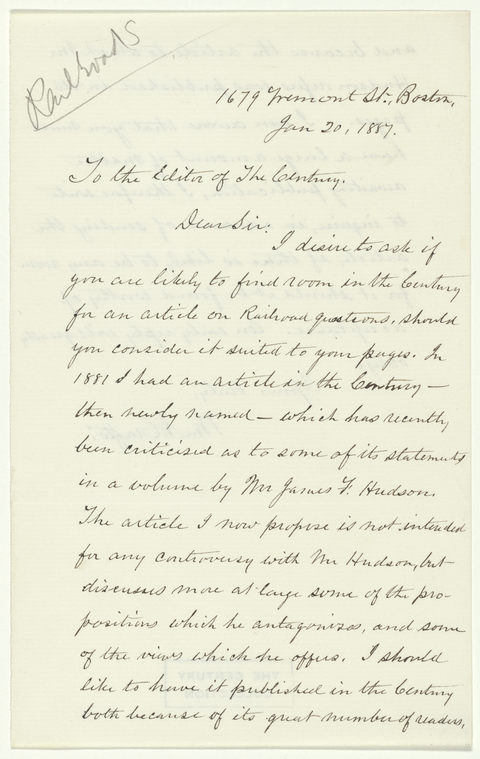 Railroads
1679 Tremont St., Boston,
Jan 20, 1887.
To the Editor of The Century.
Dear Sir:
I desire to ask if
you are likely to find room in the Century
for an article on Railroad questions, should
you consider it suited to your pages. In
1881 I had an article in the Century —
then newly named — which has recently
been criticised as to some of its statements
in a volume by Mr James F. Hudson.
The article I now propose is not intended
for any controversy with Mr Hudson, but
discusses more at large some of the pro-
positions which he antagonizes, and some
of the views which he offers. I should
like to have it published in the Century
both because of its great number of readers,
THE CENTURY